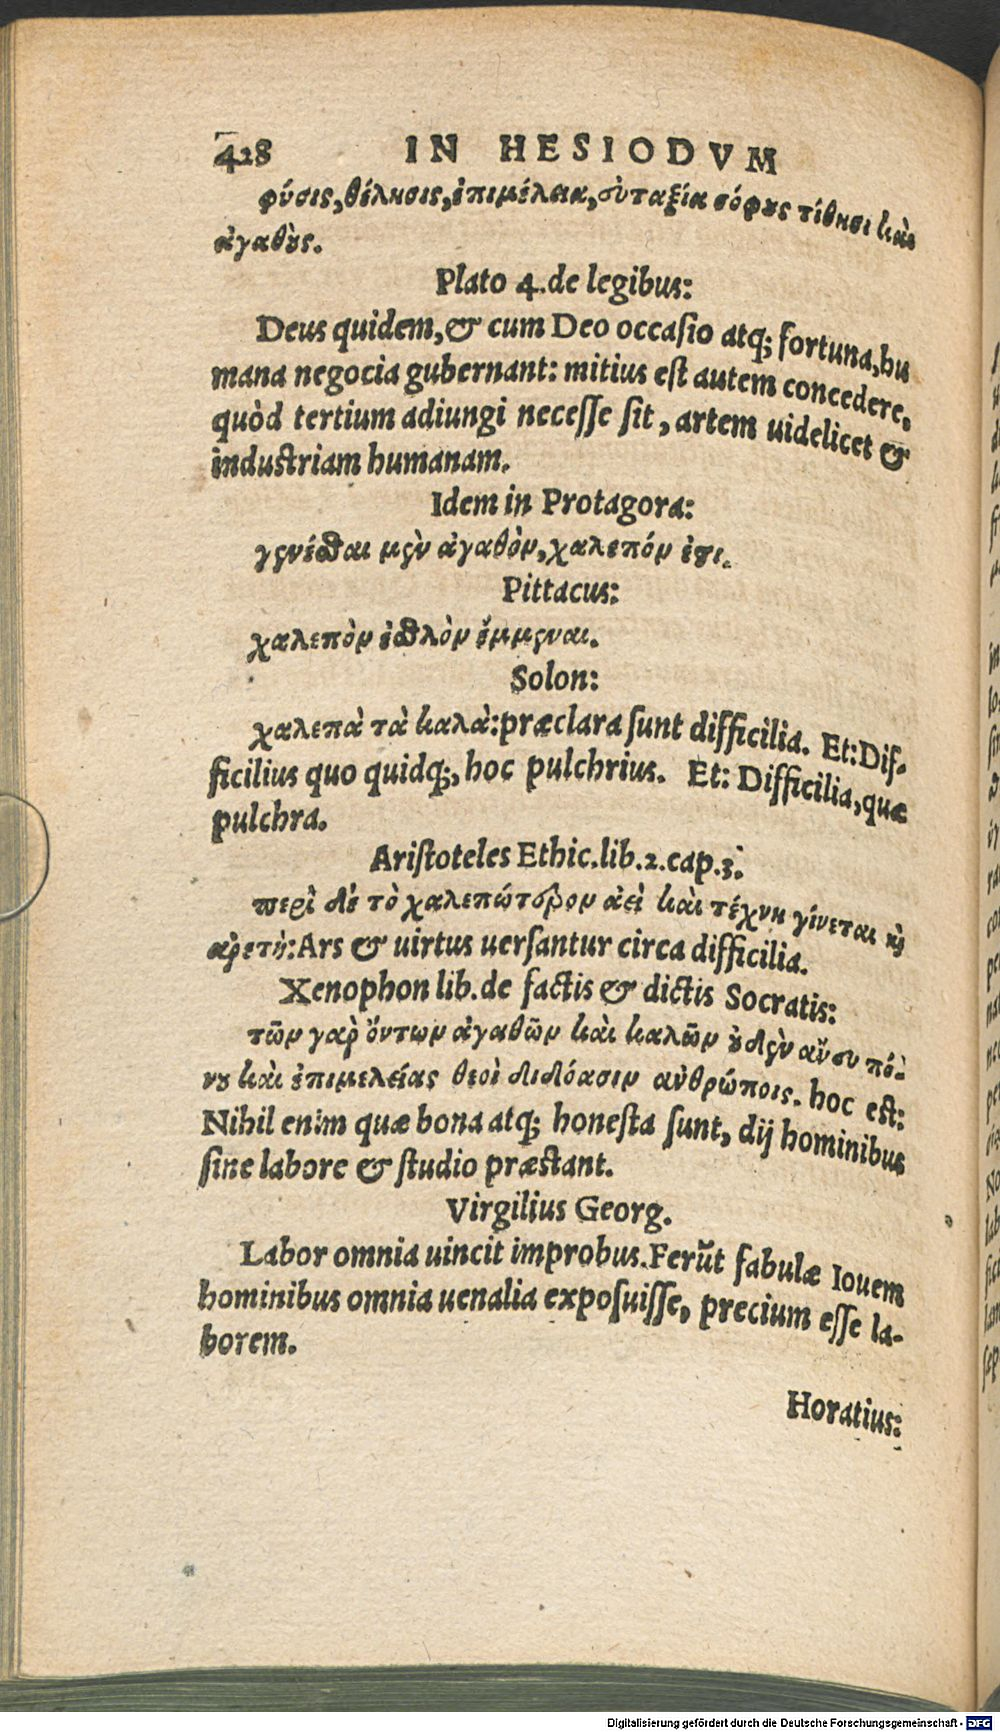 428 IN HESIODVM
φύσις, θέλησις, ἐπιμέλεια, εὐταξία σόφους τίθησι καὶ
ἀγαθούς.
Plato 4. de legibus:
Deus quidem, & cum Deo occaſio atq; fortuna, hu
mana negocia gubernant: mitius eſt autem concedere,
quòd tertium adiungi neceſſe ſit, artem uidelicet &
induſtriam humanam.
Idem in Protagora:
γενέσθαι μὲν ἀγαθὸν, χαλεπόν ἐστι.
Pittacus:
χαλεπὸν ἐσθλὸν ἔμμεναι.
Solon:
χαλεπὰ τὰ καλὰ: præclara ſunt difficilia. Et: Dif-
ficilius quo quidq;, hoc pulchrius. Et: Difficilia, quæ
pulchra.
Ariſtoteles Ethic. lib. 2. cap. 3:
περὶ δὲ τὸ χαλεπώτερον ἀεὶ καὶ τέχνη γίνεται κὴ
αρετὴ: Ars & uirtus uerſantur circa difficilia.
Xenophon lib. de factis & dictis Socratis:
τῶν γαρ ὄντων ἀγαθῶν καὶ καλῶν οὐδὲν αὔευ πό-
νου καὶ ἐπιμελείας θεοὶ διδόασιν ανθρώποις. hoc eſt:
Nihil enim quæ bona atq; honeſta ſunt, dij hominibus
ſine labore & ſtudio præſtant.
Virgilius Georg.
Labor omnia uincit improbus. Ferūt fabulæ Iouem
hominibus omnia uenalia expoſuiſſe, precium eſſe la-
borem.
Horatius:
Digitalisierung gefördert durch die Deutsche Forschungsgemeinschaft - DFG